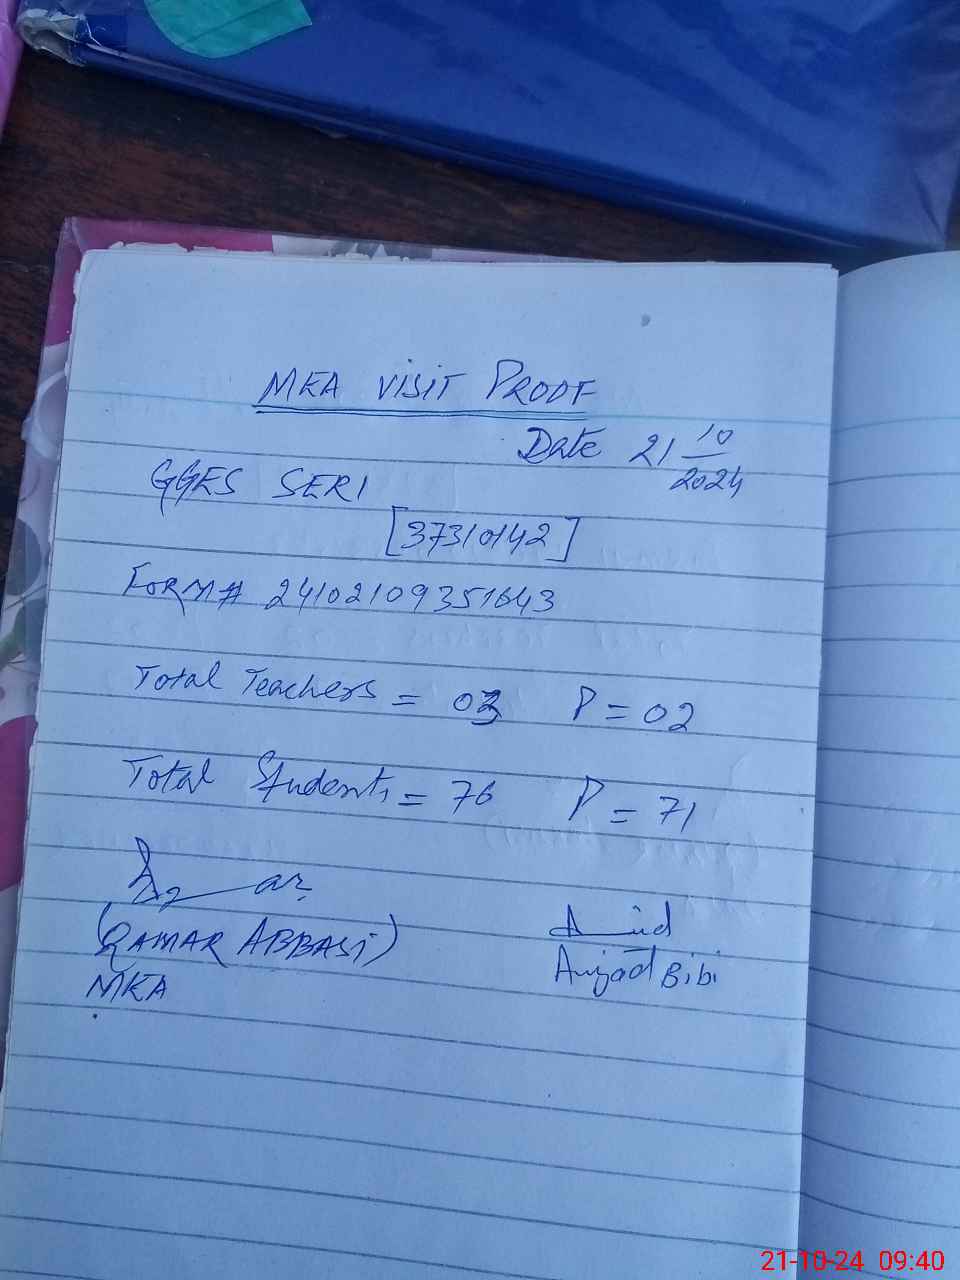 MEA VISIT PROOF
Date 21 10/2024
GGES SERI
[37310142]
FORM# 24102109351643
Total Teachers = 03 P = 02
Total Students = 76 P = 71
(QAMAR ABBASI)
MEA
Amjad Bibi
21-10-24 09:40